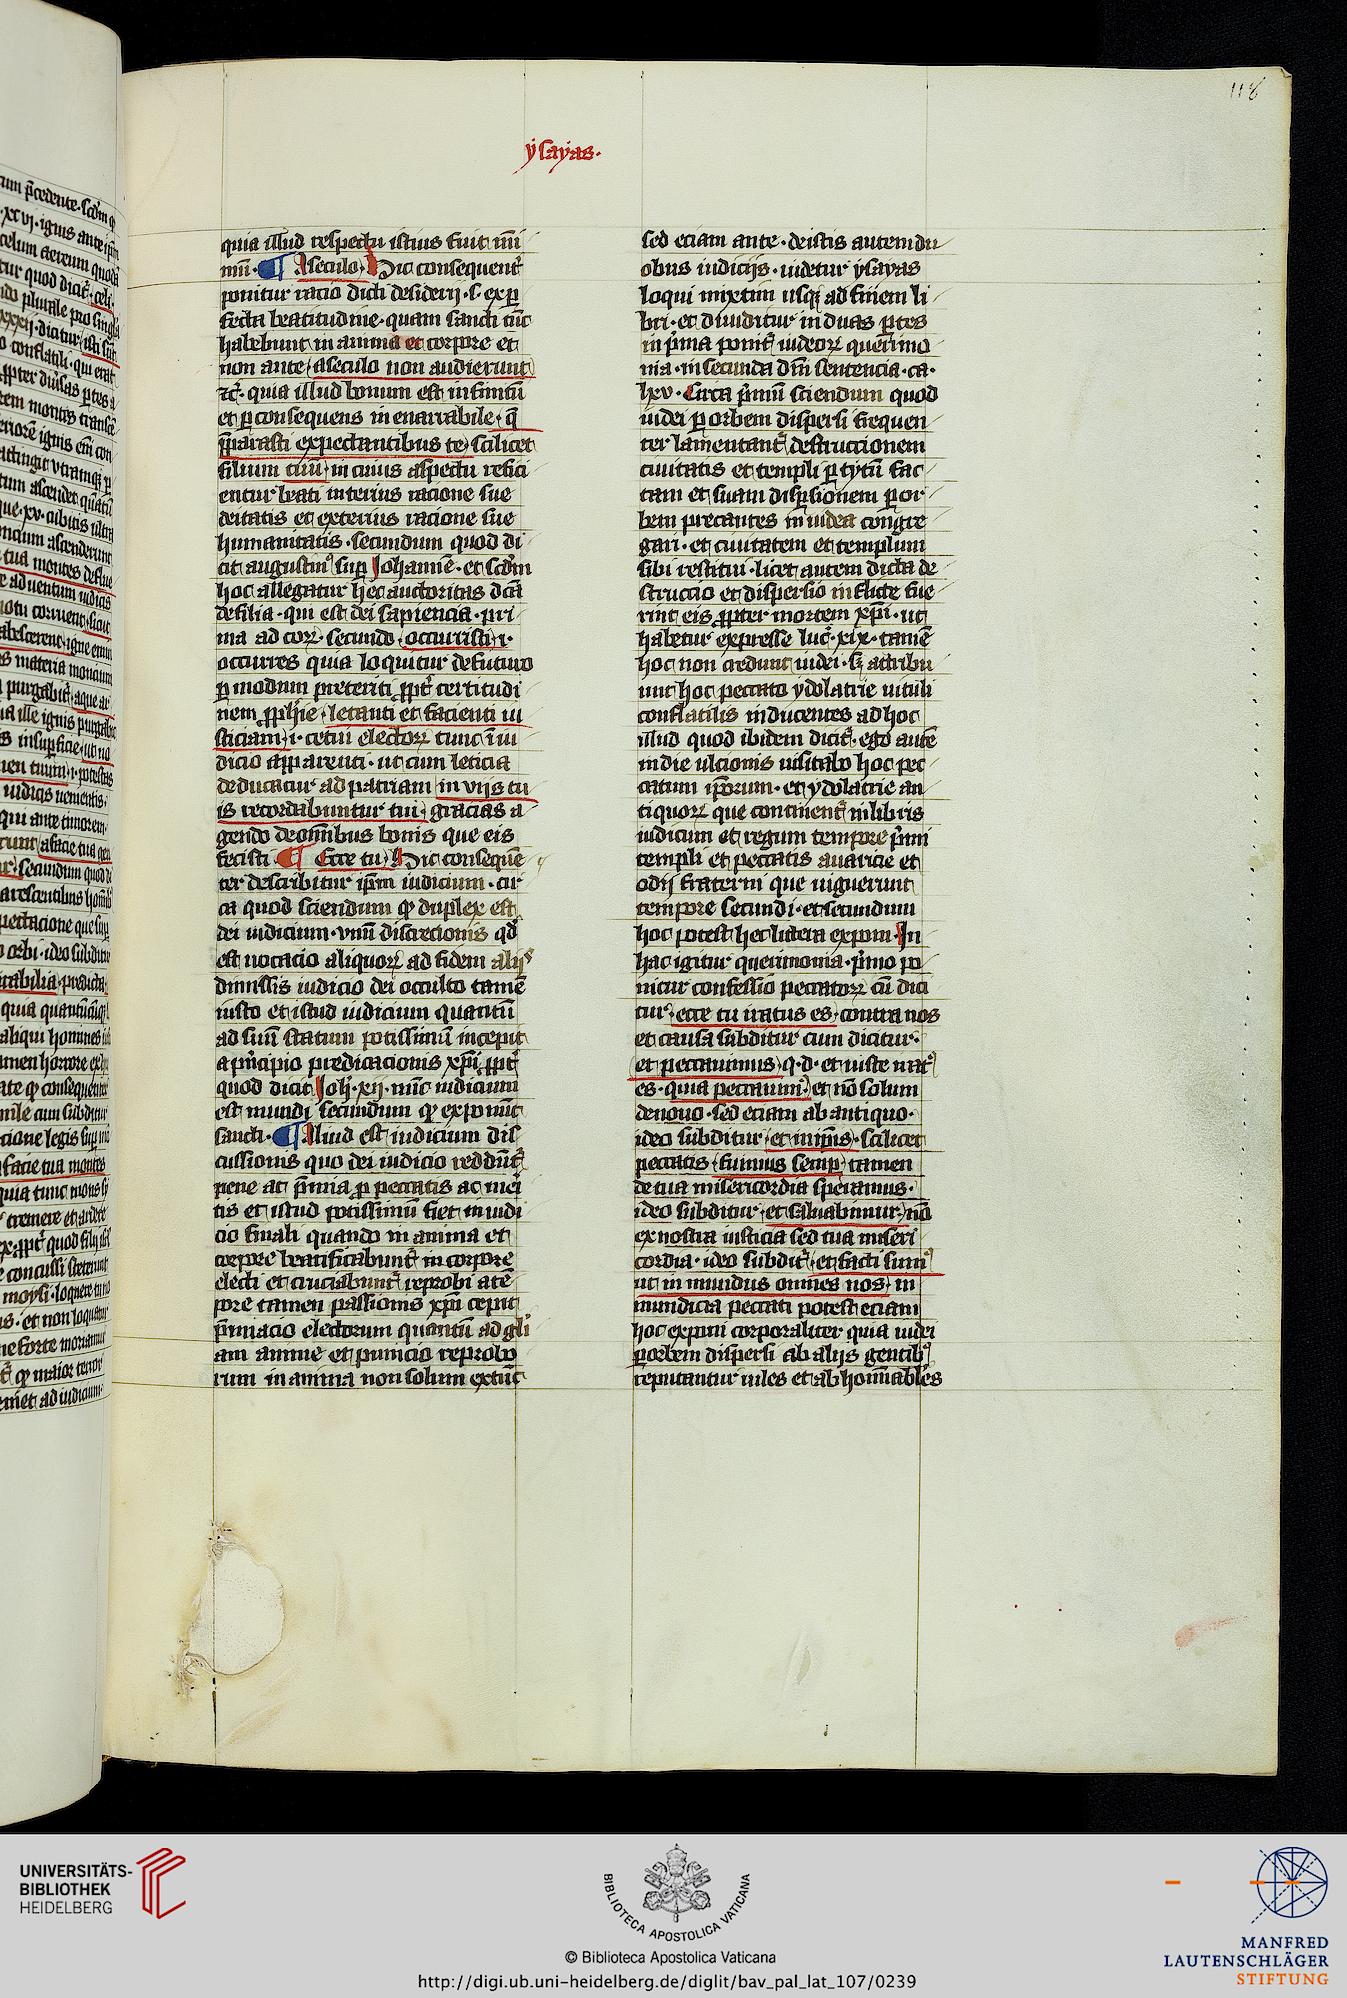 118
ysayas.
quia illud respectu istius fuit mi
mu͞. ¶ A seculo. Hic consequent᷑
ponitur racio dicti desiderij. s. ex ꝑ
fecta beatitudine. quam sancti tu͞c
habebunt in anima et corpore et
non ante. a seculo non audierunt
⁊c᷑. quia illud bonum est infinitu͞
et ꝑ consequens inenarrabile. q͞
p͞parasti expectantibus te. scilicet
filium tuu͞. in cuius aspectu refici
entur beati interius racione sue
deitatis et exterius racione sue
humanitatis. secundum quod di
cit augustinꝰ suꝑ Johanne͞. et scd͞m
hoc allegatur hec auctoritas dc͞a
de filia. qui est dei sapiencia. pri
ma ad coꝝ. secundo. occuristi. i.
occurres quia loquitur de futuro
ꝑ modum preteriti ꝓpt᷑ certitudi
nem ꝓph͞ie. letanti et facienti iu
sticiam. i. cetui electoꝝ tunc i͞ iu
dicio apparenti. ut cum leticia
deducatur ad patriam in vijs tu
is recordabuntur tui. gracias a
gendo de om͞ibus bonis que eis
fecisti. ¶ Ecce tu. Hic conseque͞
ter describitur ip͞m iudicium. cir
ca quod sciendum ꝙ duplex est
dei iudicium. vnu͞ discrecionis qd͛
est uocacio aliquoꝝ ad fidem alijs
dimissis iudicio dei occulto tame͞
iusto et istud iudicium quantu͞
ad suu͞ statum potissimu͞ incepit
a p᷑ncipio predicacionis xp͞i ꝓpt᷑
quod dicit Joh͛. xij. nu͞c iudicium
est mundi secundum ꝙ exponu͞t
sancti. ¶ Aliud est iudicium dis
cussionis quo dei iudicio reddu͞t᷑
pene ac p͞mia ꝑ peccatis ac meri
tis et istud potissimu͞ fiet in iudi
cio finali quando in anima et
corpore beatificabunt᷑ in corpore
electi et cruciabunt᷑ reprobi a te͞
pore tamen passionis xp͞i cepit
p͞miacio electorum quantu͞ ad gl᷑i
am anime et punicio reprobo
rum in anima non solum ext͞uc
sed eciam ante. de istis autem du
obus iudicijs. uidetur ysayas
loqui mixtim usqꝫ ad finem li
bri. et diuiditur in duas ꝑtes
in p᷑ma ponit᷑ iudeoꝝ querimo
nia. in secunda dn͞i sentencia. ca.
lxv. Circa p᷑mu͞ sciendum quod
iudei ꝑ orbem dispersi frequen
ter lamentant᷑ destruccionem
ciuitatis et templi ꝑ tytu͞ fac
tam et suam disꝑsionem ꝑ or
bem precantes in iudea congre
gari. et ciuitatem et templum
sibi restitui. licet autem dicta de
struccio et dispersio inflicte fue
rint eis ꝓpter mortem xp͞i. ut
habetur expresse luc᷑. xix. tame͞
hoc non credunt iudei. sꝫ attribu
unt hoc peccato ydolatrie uituli
conflatilis inducentes ad hoc
illud quod ibidem dicit᷑. ego aute͞
in die ulcionis uisitabo hoc pec
catum ip͞orum. et ydolatrie an
tiquoꝝ que continent᷑ in libris
iudicum et regum tempore p᷑mi
templi et peccatis auaricie et
odij fraterni que uiguerunt
tempore secundi. et secundum
hoc potest hec littera exponi. In
hac igitur querimonia. p᷑mo po
nitur confessio peccatoꝝ cu͞ dici
tur. ecce tu iratus es. contra nos
et causa subditur cum dicitur.
et peccauimus. q. d. et iuste iratꝰ
es. quia peccauimꝰ. et no͞ solum
de nouo. sed eciam ab antiquo.
ideo subditur. et in ip͞is. scilicet
peccatis. fuimus semꝑ. tamen
de tua misericordia speramus.
ideo subditur. et saluabimur. no͞
ex nostra iusticia sed tua miseri
cordia. ideo subdit᷑. et facti sumꝰ
ut inmundus omnes nos. in
mundicia peccati potest eciam
hoc exponi corporaliter quia iudei
ꝑ orbem dispersi ab alijs gentibꝰ
reputantur uiles et abhomi͞ables
UNIVERSITÄTS-
BIBLIOTHEK
HEIDELBERG
BIBLIOTECA APOSTOLICA VATICANA
© Biblioteca Apostolica Vaticana
http://digi.ub.uni-heidelberg.de/diglit/bav_pal_lat_107/0239
MANFRED
LAUTENSCHLÄGER
STIFTUNG